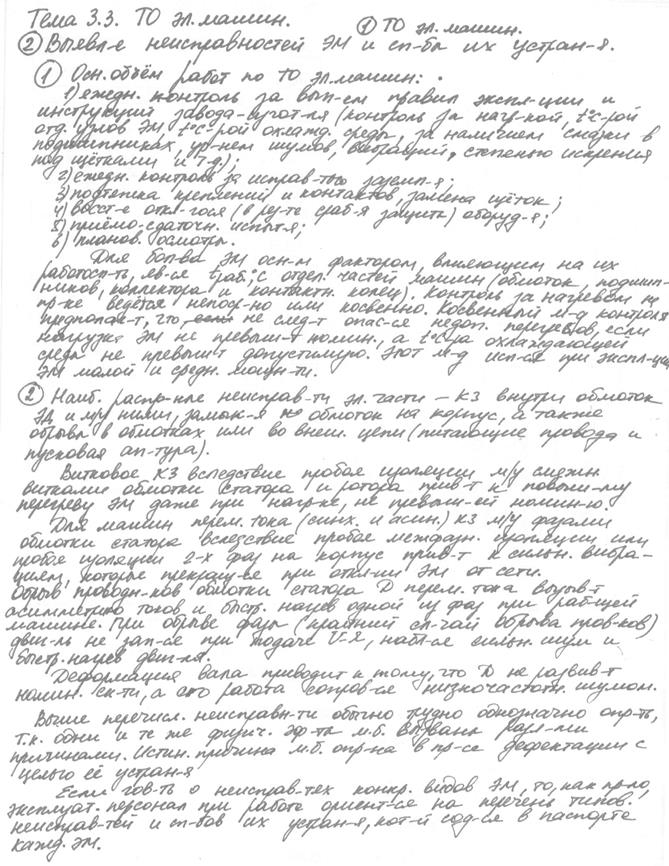 Тема 3.3. ТО эл.машин. ① ТО эл.машин.
② Выявл-е неисправностей ЭМ и сп-бы их устран-я.
① Осн.объём работ по ТО эл.машин:
1) ежедн. контроль за вып-ем правил экспл-ции и
инструкций завода-изгот-ля (контроль за нагр-кой, t°с-рой
отд. узлов ЭМ, t°с-рой охлажд. среды, за наличием смазки в
подшипниках, ур-нем шумов, вибраций, степенью искрения
под щётками и т.д.);
2) ежедн. контроль за исправ-тью заземл-я;
3) подтяжка креплений и контактов, замена щёток;
4) восст-е откл-гося (в рез-те сраб-я защиты) оборуд-я;
5) приёмо-сдаточн. испыт-я;
6) планов. осмотры.
Для бол-ва ЭМ осн-м фактором, влияющим на их
работосп-ть, яв-ся t раб;°с отдел. частей машин (обмоток, подшип-
ников, коллектора и контактн. колец). Контроль за нагревом на
пр-ке ведётся непоср-но или косвенно. Косвенный м-д контроля
предполаг-т, что, если не след-т опас-ся недоп. перегревов, если
нагрузка ЭМ не превыш-т номин., а t°с-ра охлаждающей
среды не превыш-т допустимую. Этот м-д исп-ся при экспл-ции
ЭМ малой и средн. мощн-ти.
② Наиб. распр-ные неисправ-ти эл. части – КЗ внутри обмоток
ЭД и м/у ними, замык-я обмоток на корпус, а также
обрывы в обмотках или во внеш. цепи (питающие провода и
пусковая ап-тура).
Витковое КЗ вследствие пробоя изоляции м/у смежн.
витками обмотки статора и ротора прив-т к повыш-му
перегреву ЭМ даже при нагр-ке, не превыш-ей номин-ю.
Для машин перем. тока (синх. и асин.) КЗ м/у фазами
обмотки статора вследствие пробоя межфазн. изоляции или
пробоя изоляции 2-х фаз на корпус прив-т к сильн. вибра-
циям, которые прекращ-ся при откл-ии ЭМ от сети.
Обрыв проводн-ков обмотки статора D перем. тока вызыв-т
асимметрию токов и быстр. нагрев одной из фаз при раб-щей
машине. При обрыве фазы (крайний сл-чай обрыва пров-ков)
двиг-ль не зап-ся при подаче U-я, набл-ся сильн. шум и
быстр. нагрев двиг-ля.
Деформация вала приводит к тому, что D не развив-т
номин. ск-ти, а его работа сопров-ся низкочастотн. шумом.
Выше перечисл. неисправн-ти обычно трудно однозначно опр-ть,
т.к. одни и те же физич. эф-ты м.б. вызваны разл-ми
причинами. Истин. причина м.б. опр-на в пр-се дефектации с
целью её устран-я
Если гов-ть о неисправ-тех конкр. видов ЭМ, то, как пр-ло,
эксплуат. персонал при работе ориент-ся на перечень типов.
неисправ-тей и сп-бов их устран-я, кот-й сод-ся в паспорте
кажд. ЭМ.